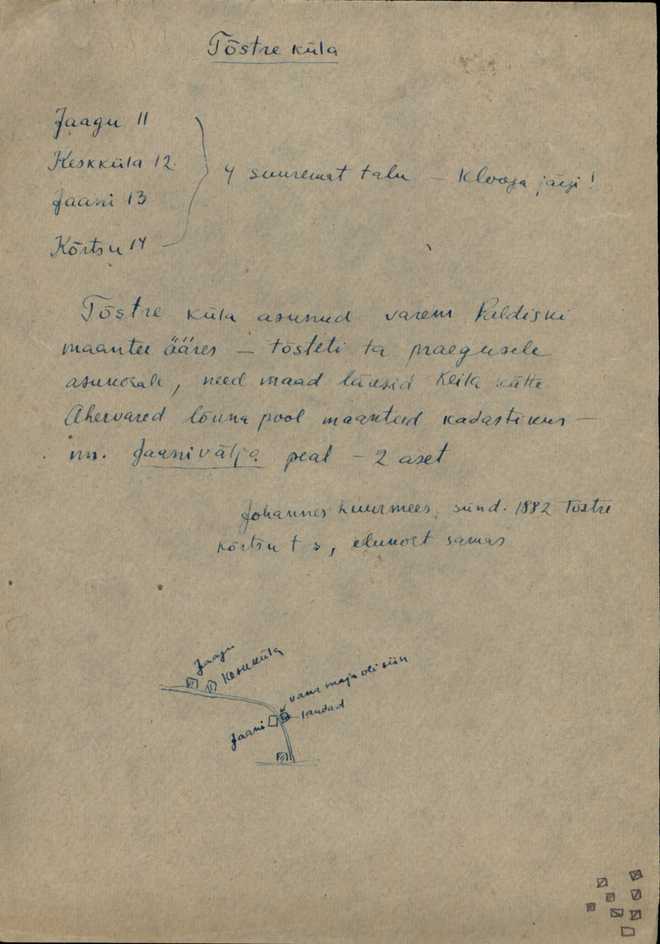 Tõstre küla
Jaagu 11
Keskküla 12.
Jaani 13
Kõrtsu 14
4 suuremat talu – Klooga järgi!
Tõstre küla asunud varem Paldiski
maantee ääres – tõsteti ta praegusele
asukohale, need maad läksid Keila kätte
Ahervared lõuna pool maanteed kadastikus –
nn. Jaanivälja peal – 2 aset
Johannes Luurmees, sünd. 1882 Tõstre
kõrtsu t s, elukoht samas
Jaagu
Keskküla
vana maja oli siin
laudad
Jaani